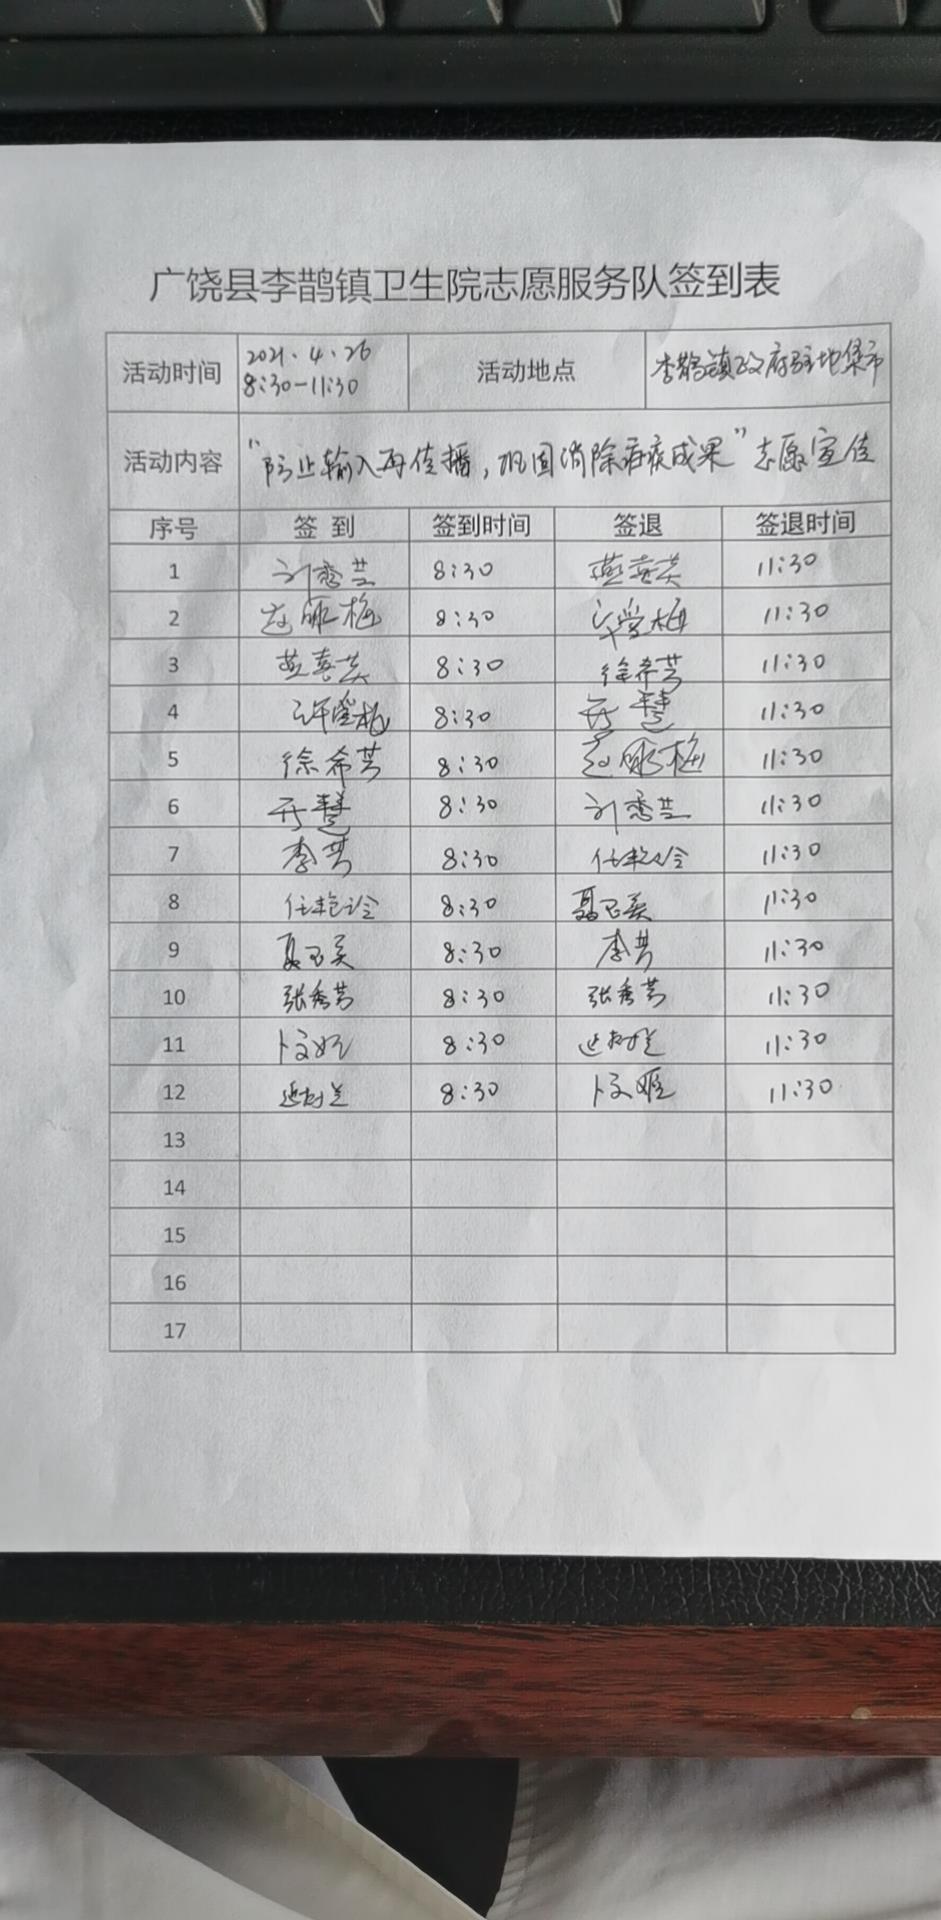 广饶县李鹊镇卫生院志愿服务队签到表
活动时间 2021.4.26 8:30-11:30 活动地点 李鹊镇政府驻地集市
活动内容 "防止输入再传播，巩固消除疟疾成果"志愿宣传
序号 签到 签到时间 签退 签退时间
1 刘秀兰 8:30 燕喜英 11:30
2 赵丽梅 8:30 许爱梅 11:30
3 燕喜英 8:30 徐希芳 11:30
4 许爱梅 8:30 慧 11:30
5 徐希芳 8:30 赵丽梅 11:30
6 慧 8:30 刘秀兰 11:30
7 李芳 8:30 任艳玲 11:30
8 任艳玲 8:30 聂玉美 11:30
9 聂玉美 8:30 李芳 11:30
10 张秀芳 8:30 张秀芳 11:30
11 8:30 延树兰 11:30
12 延树兰 8:30 11:30
13
14
15
16
17